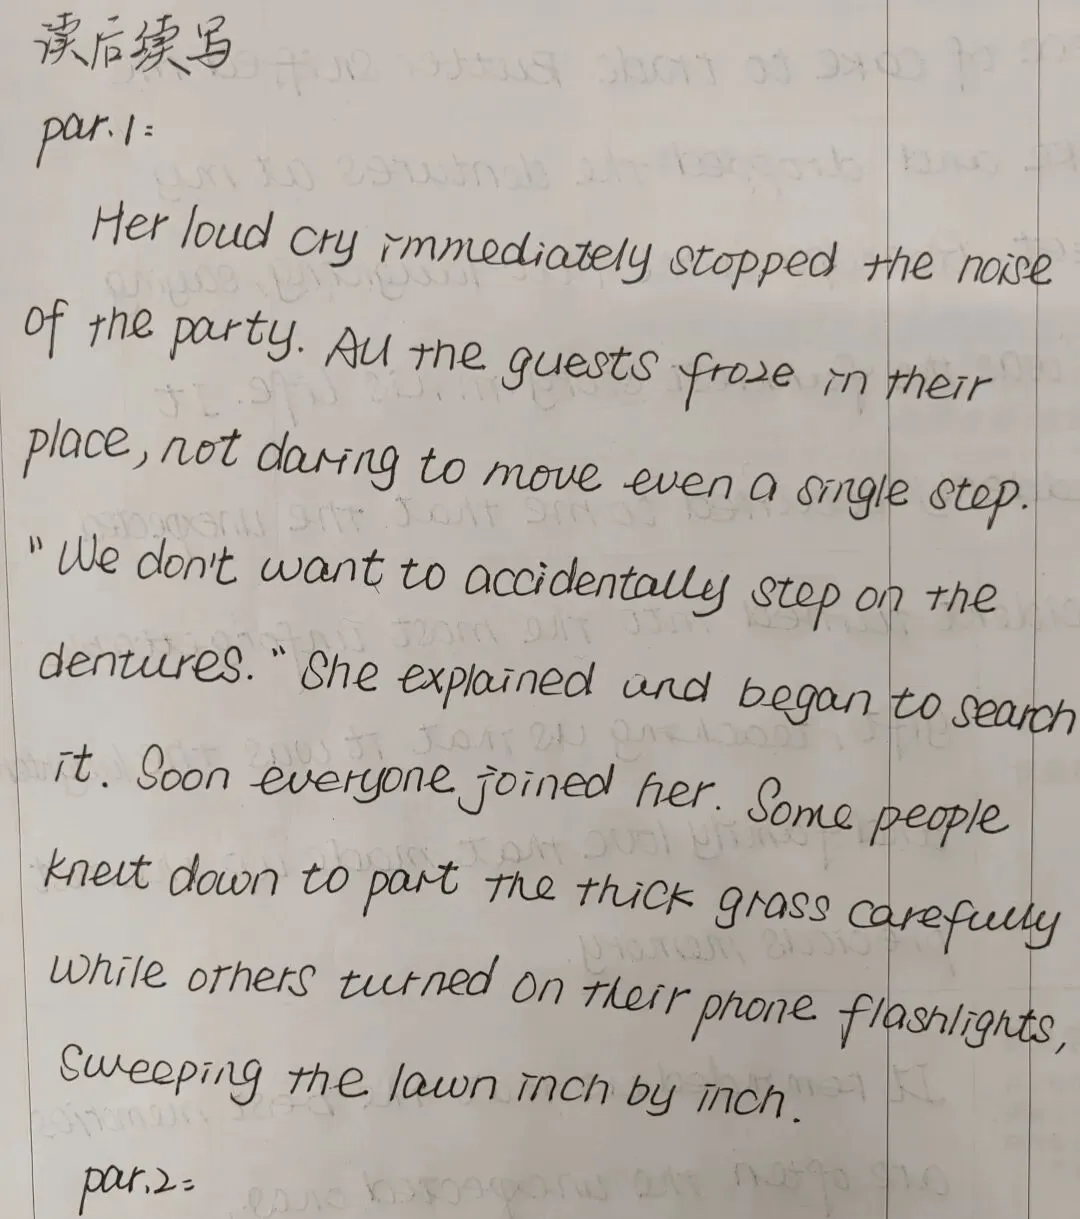 读后续写
par.1:
Her loud cry immediately stopped the noise
of the party. All the guests froze in their
place, not daring to move even a single step.
"We don't want to accidentally step on the
dentures." She explained and began to search
it. Soon everyone joined her. Some people
knelt down to part the thick grass carefully
while others turned on their phone flashlights,
sweeping the lawn inch by inch.
par.2: